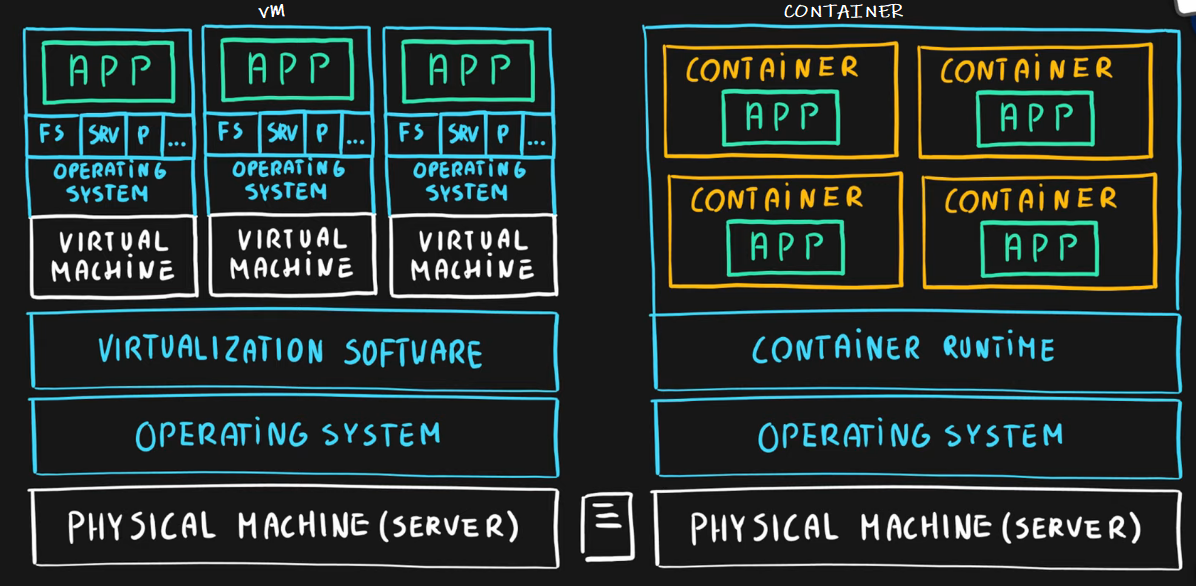 VM
APP
FS SRV P ...
OPERATING
SYSTEM
VIRTUAL
MACHINE
APP
FS SRV P ...
OPERATING
SYSTEM
VIRTUAL
MACHINE
APP
FS SRV P ...
OPERATING
SYSTEM
VIRTUAL
MACHINE
VIRTUALIZATION SOFTWARE
OPERATING SYSTEM
PHYSICAL MACHINE (SERVER)
CONTAINER
CONTAINER
APP
CONTAINER
APP
CONTAINER
APP
CONTAINER
APP
CONTAINER RUNTIME
OPERATING SYSTEM
PHYSICAL MACHINE (SERVER)